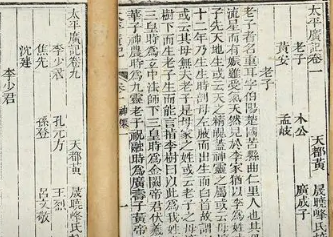 太平廣記卷一
天都黃 晟曉峰氏
老子 木公 廣成子
黃安 孟岐
老子
老子者名重耳字伯陽楚國苦縣曲仁里人也其母感大
流星而有娠雖受氣天然見於李家猶以李為姓或云老
子先天地生或云天之精魄蓋神靈之屬或云母懷之七
十二年乃生生時剖母左腋而出生而白首故謂之老子
或云其母無夫老子是母家之姓或云老子之母適至李
樹下而生老子生而能言指李樹曰以此為我姓或云上
三皇時為玄中法師下三皇時為金闕帝君伏羲時為鬱
華子神農時為九靈老子祝融時為廣壽子黃帝時
太平廣記卷九
天都黃 晟曉峰氏
李少君 孔元方 王烈
焦先 孫登 呂文敬
沈建
李少君